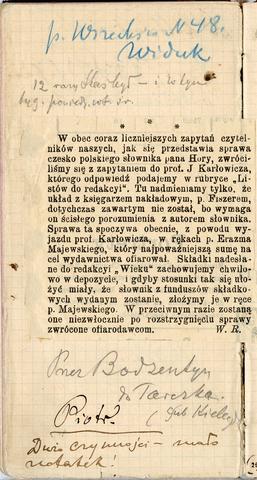 p. Wrzechin N 48.
Widuk
12 razy
* * *
W obec coraz liczniejszych zapytań czytel-
ników naszych, jak się przedstawia sprawa
czesko polskiego słownika pana Hory, zwróci-
liśmy się z zapytaniem do prof. J Karłowicza,
którego odpowiedź podajemy w rubryce „Li-
stów do redakcyi”. Tu nadmieniamy tylko, że
układ z księgarzem nakładowym, p. Fiszerem,
dotychczas zawartym nie został, bo wymaga
on ścisłego porozumienia z autorem słownika.
Sprawa ta spoczywa obecnie, z powodu wy-
jazdu prof Karłowicza, w rękach p. Erazma
Majewskiego, który najpoważniejszą sumę na
cel wydawnictwa ofiarował. Składki nadesła-
ne do redakcyi „Wieku” zachowujemy chwilo-
wo w depozycie, i gdyby stosunki tak się uło-
żyć miały, że słownik z funduszów składko-
wych wydanym zostanie, złożymy je w ręce
p. Majewskiego. W przeciwnym razie zostaną
one niezwłocznie po rozstrzygnięciu sprawy
zwrócone ofiarodawcom. W. R.
Przez Bodzentyn
do
(gub Kielec)
Piotr.
Dużo czynności – mało
notatek!